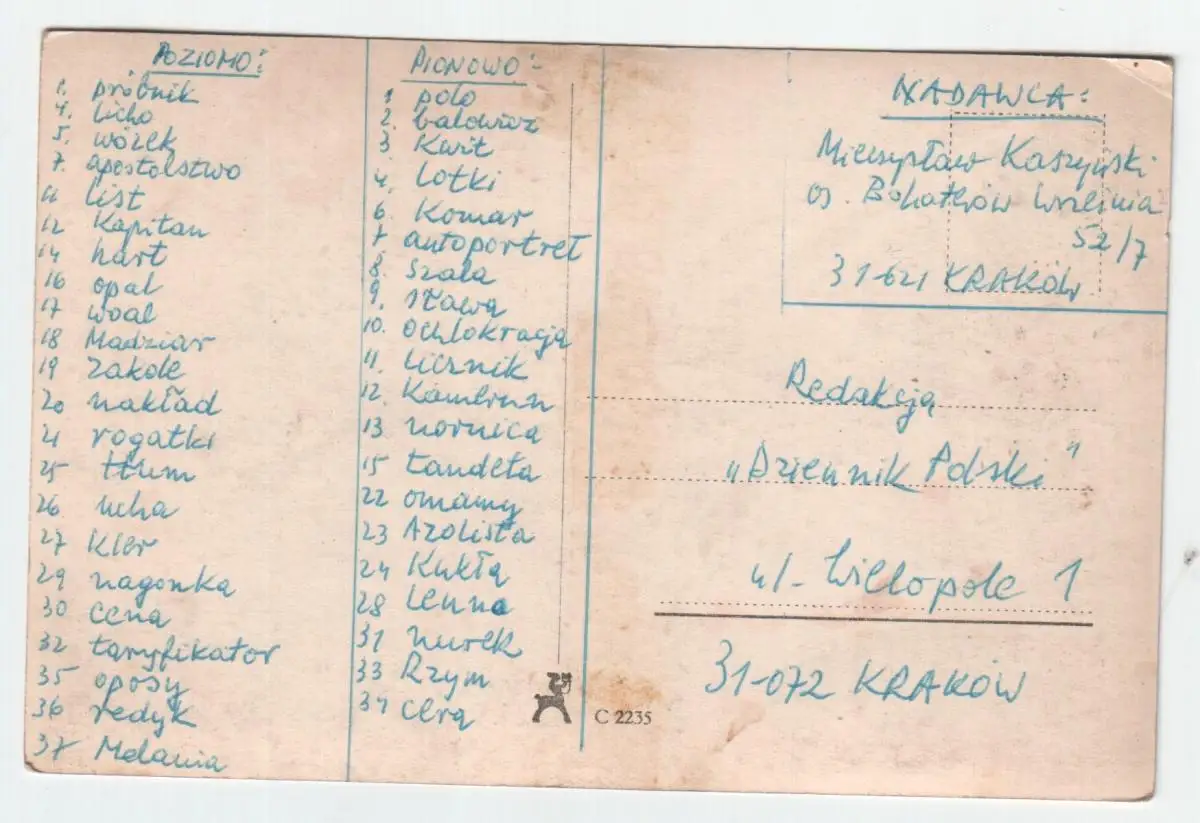 POZIOMO:
1. próbnik
4. licho
5. wózek
7. apostolstwo
11 list
12 Kapitan
14 hart
16 opal
17 woal
18 Madziar
19 Zakole
20 nakład
21 rogatki
25 tłum
26 ucha
27 Kler
29 nagonka
30 cena
32 taryfikator
35 oposy
36 redyk
37 Melania
PIONOWO:
1 polo
2. balowicz
3 Kwit
4. lotki
6. Komar
7 autoportret
8. Szala
9. sława
10. ochlokracja
11. licznik
12. Kamerun
13 nornica
15 tandeta
22 omamy
23 Azolista
24 Kukła
28 lenno
31 nurek
33 Rzym
34 cera
C 2235
NADAWCA:
Mieczysław Kaszyński
os. Bohaterów Września
52/7
31-621 KRAKÓW
Redakcja
"Dziennik Polski"
ul. Wielopole 1
31-072 KRAKÓW